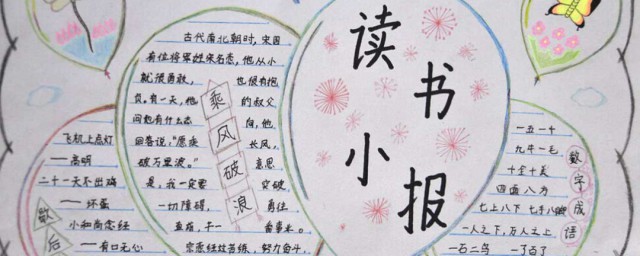 读书小报
古代南北朝时，宋国
有位将军姓宋名悫，他从小
就很勇敢， 也很有抱
负。有一天，他 的叔父
问他有什么志 向，他
回答说，“愿乘 长风，
破万里浪。” 意思
是，我一定要 突破
一切障碍， 勇往
直前，干一 番事业。
宗悫经过苦练，努力奋斗，
乘风破浪
飞机上点灯
——高明
二十一天不出鸡
——坏蛋
小和尚念经
——有口无心
歇后
一五一十
九牛一毛
十全十美
四面八方
七上八下 七手八脚
一人之下，万人之上
一石二鸟 一了百了
数字成语